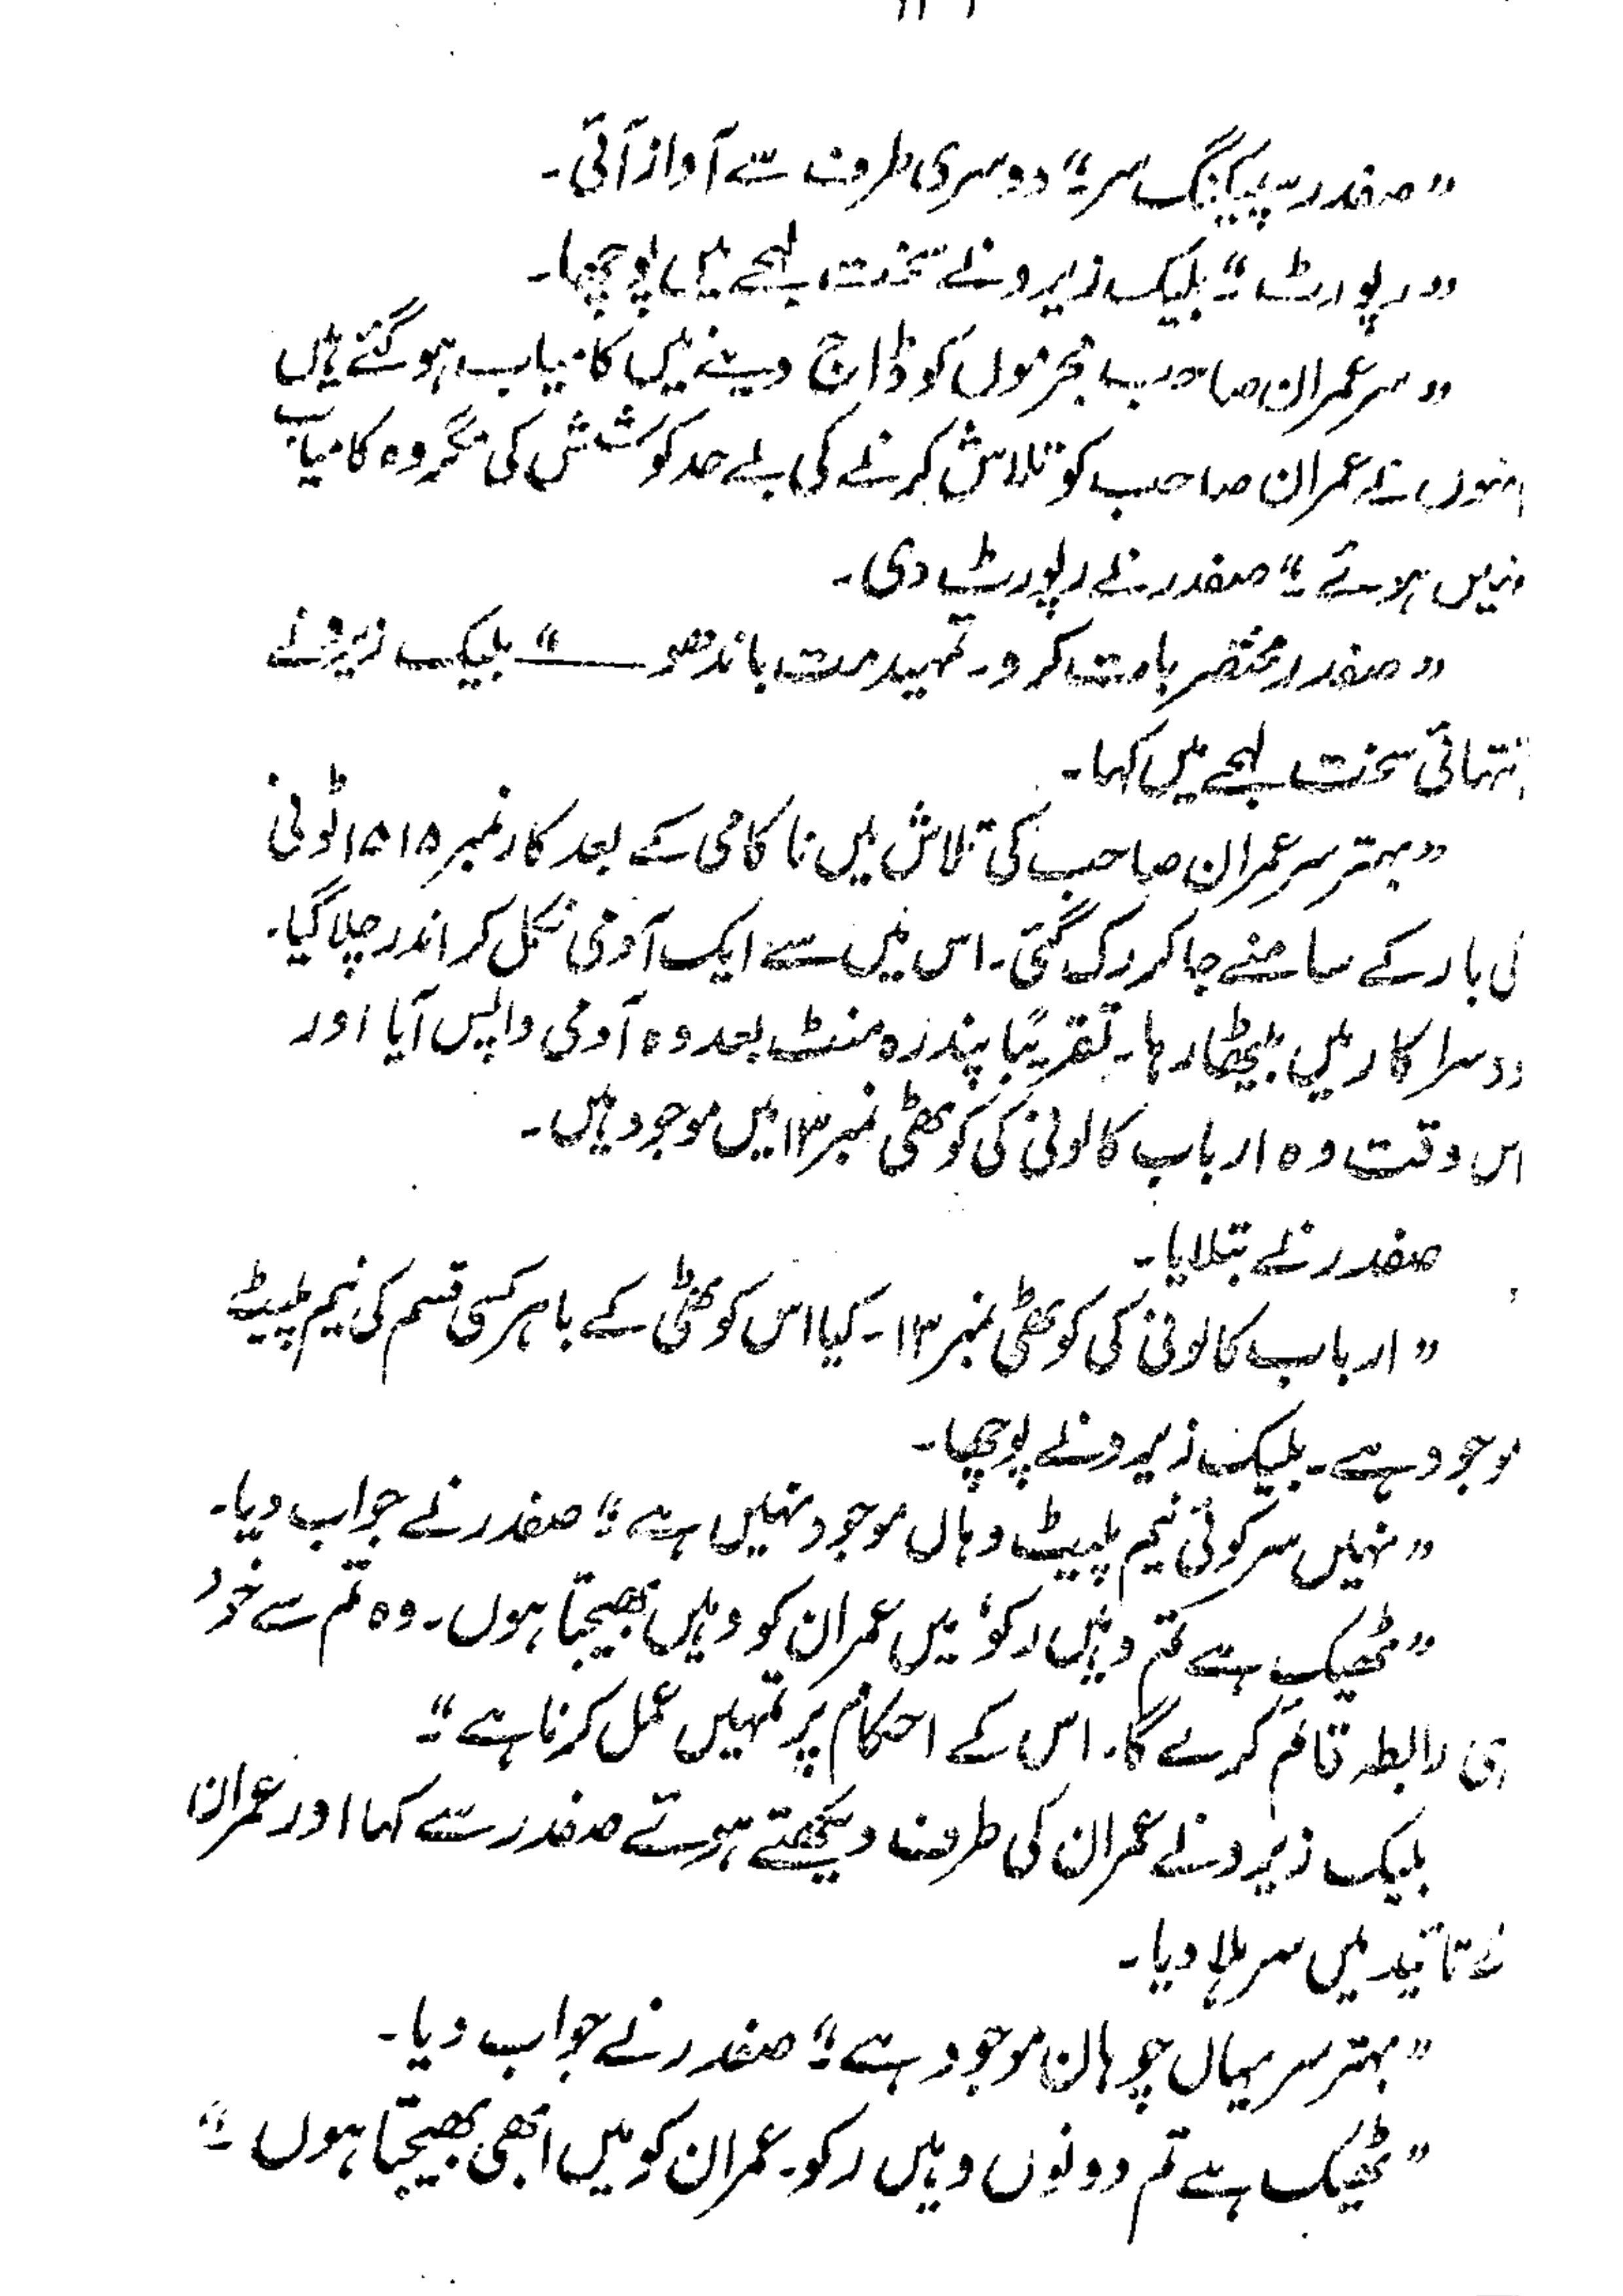 ”صفدر سپیکنگ سر“۔ دوسری طرف سے آواز آئی۔
”رپورٹ“۔ بلیک زیرو نے سخت لہجے میں پوچھا۔
”سر عمران صاحب مجرموں کو ڈاج دینے میں کامیاب ہو گئے ہیں
انہوں نے عمران صاحب کو تلاش کرنے کی بے حد کوشش کی مگر وہ کامیاب
نہیں ہوئے“۔ صفدر نے رپورٹ دی۔
”صفدر مختصر بات کرو۔ تمہید مت باندھو ——“ بلیک زیرو نے
انتہائی سخت لہجے میں کہا۔
”بہتر سر عمران صاحب کی تلاش میں ناکامی کے بعد کار نمبر ۱۵۱۵ ٹونی
کی بار کے سامنے جا کر رک گئی۔ اس میں سے ایک آدمی نکل کر اندر چلا گیا۔
دوسرا کار میں بیٹھا رہا۔ تقریباً پندرہ منٹ بعد وہ آدمی واپس آیا اور
اس وقت وہ ارباب کالونی کی کوٹھی نمبر ۱۳ میں موجود ہیں۔
صفدر نے بتلایا۔
”ارباب کالونی کی کوٹھی نمبر ۱۳۔ کیا اس کوٹھی کے باہر کسی قسم کی نیم پلیٹ
موجود ہے۔ بلیک زیرو نے پوچھا۔
”نہیں سر کوئی نیم پلیٹ وہاں موجود نہیں ہے“۔ صفدر نے جواب دیا۔
”ٹھیک ہے تم وہیں رکو، میں عمران کو وہیں بھیجتا ہوں۔ وہ تم سے خود
ہی رابطہ قائم کرے گا۔ اس کے احکام پر تمہیں عمل کرنا ہے“۔
بلیک زیرو نے عمران کی طرف دیکھتے ہوئے صفدر سے کہا اور عمران
نے تائید میں سر ہلا دیا۔
”بہتر سر یہاں چوہان موجود ہے“۔ صفدر نے جواب دیا۔
”ٹھیک ہے تم دونوں وہیں رکو۔ عمران کو میں ابھی بھیجتا ہوں“۔